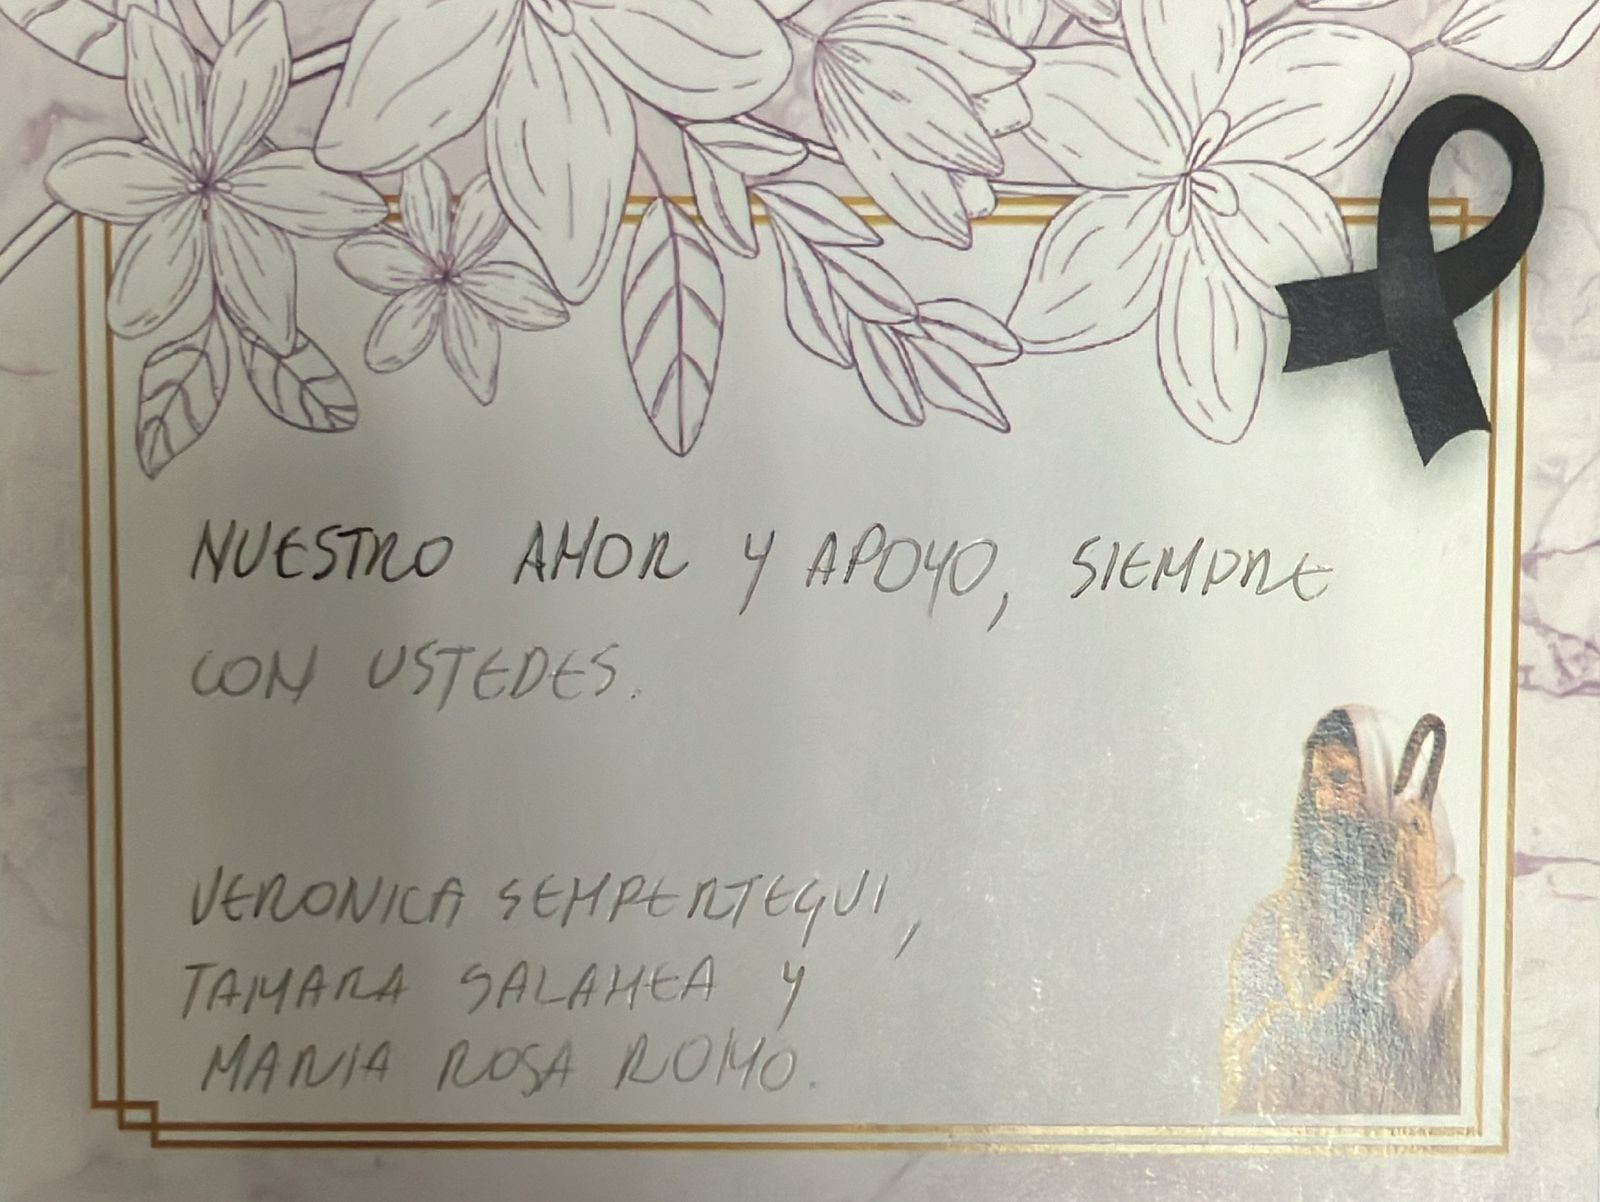 NUESTRO AMOR Y APOYO, SIEMPRE
CON USTEDES.
VERONICA SEMPERTEGUI,
TAMARA SALAMEA Y
MARIA ROSA ROMO.